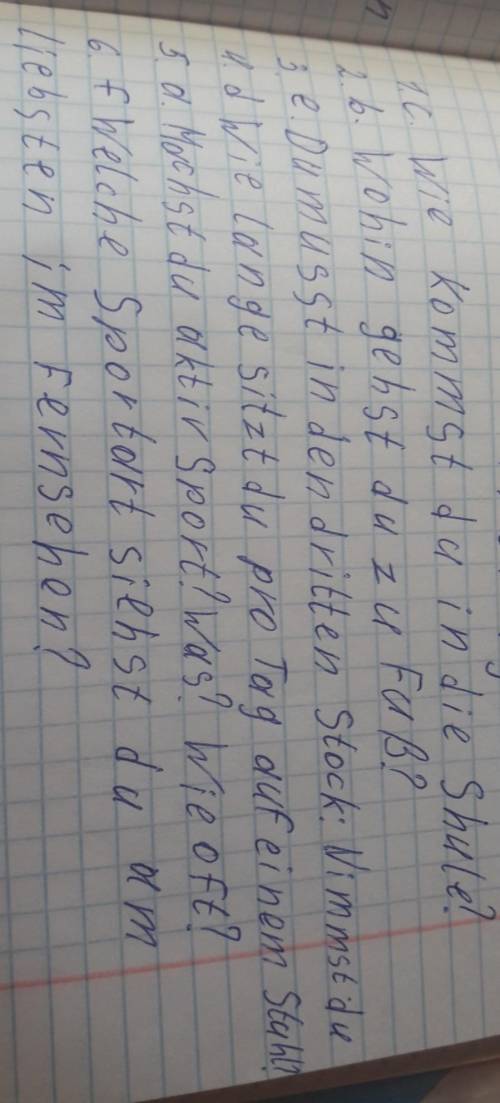 1. c. Wie kommst du in die Shule?
2. b. Wohin gehst du zu Fuß?
3. e. Du musst in den dritten Stock: Nimmst du
4. d Wie lange sitzt du pro Tag auf einem Stuhl?
5. a. Machst du aktiv Sport? Was? Wie oft?
6. f Welche Sportart siehst du am
liebsten im Fernsehen?